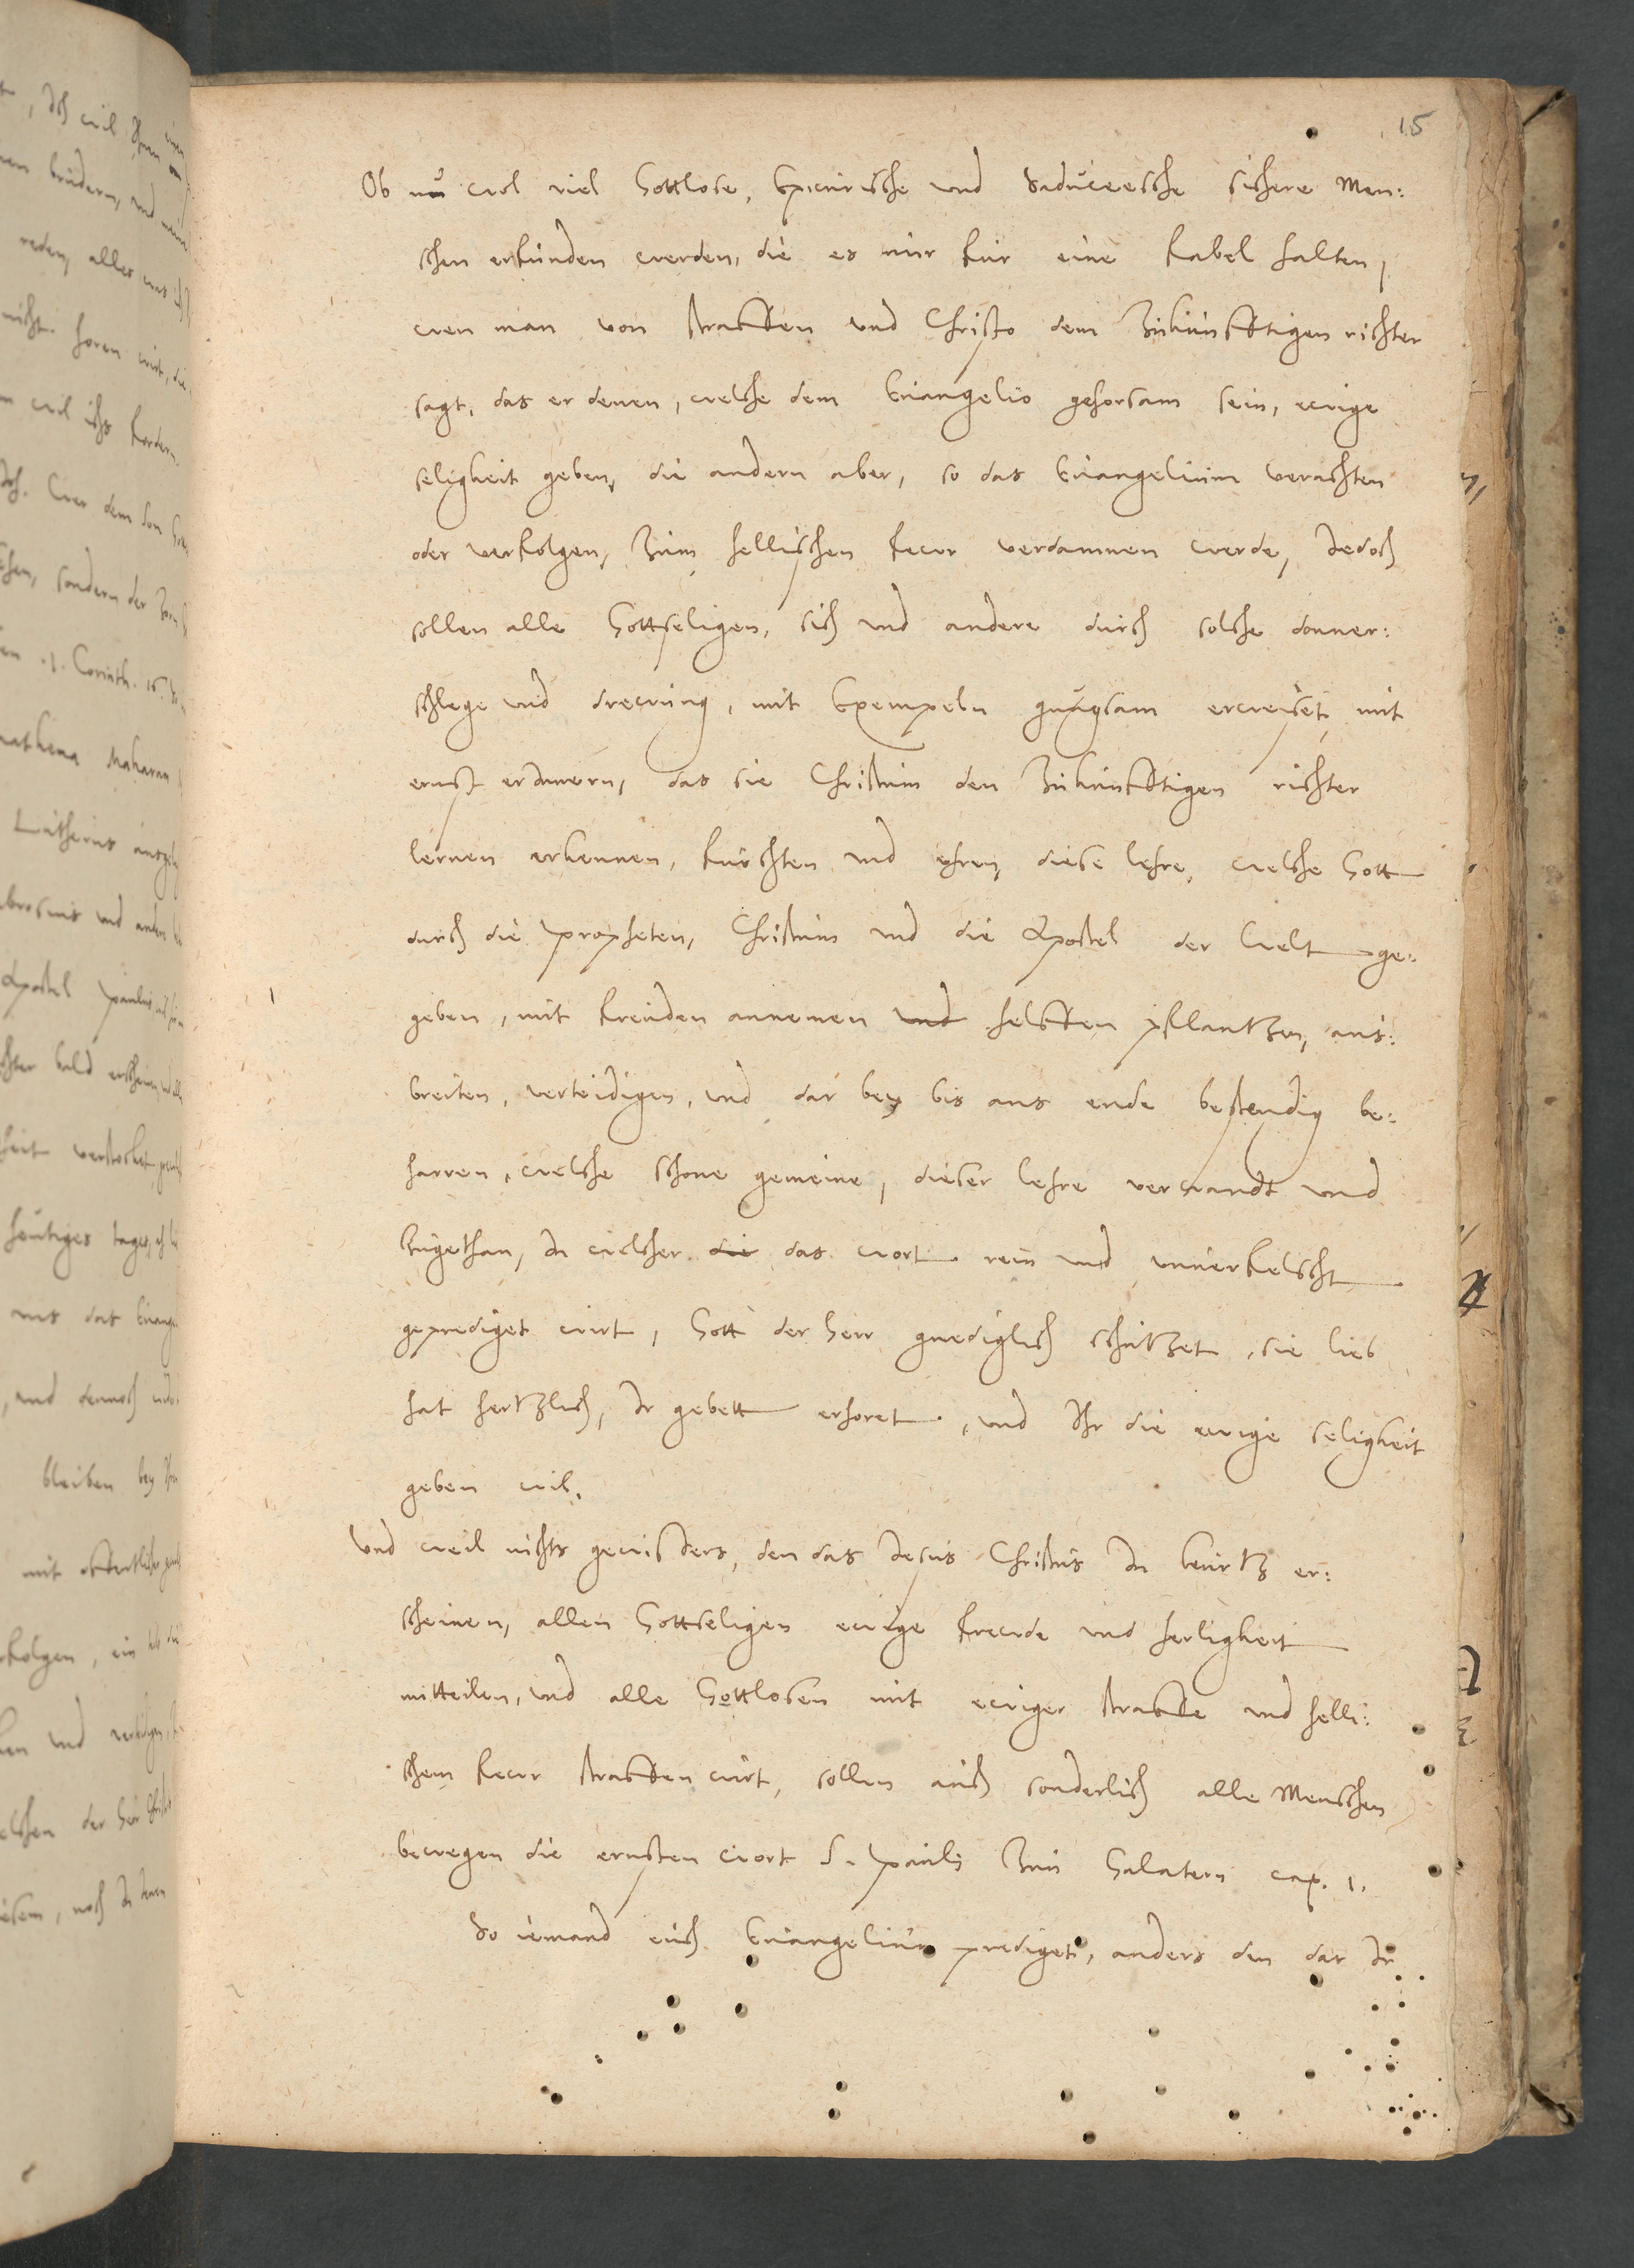 15
Ob nu wol viel Gottlose, Epicurische und Saduceesche sichere Men:
schen erfunden werden, die es nur fur eine fabel halten,
wen man von straffen und Christo dem Zukunfftigen richter
sagt, das er denen, welche dem Euangelio gehorsam sein, ewige
seligkeit geben, die andern aber, so das Euangelium verachten
oder verfolgen, Zum hellischen fewr verdammen werde, Jedoch
sollen alle Gottseligen, sich und andere durch solche donner:
schlege und drewung, mit Exempeln gnugsam erweiset mit
ernst erJnnern, das sie Christum den Zukunfftigen richter
lernen erkennen, furchten und ehren, diese lehre, welche Gott
durch die propheten, Christum und die Apostel der Welt ge:
geben, mit freuden annemen und helffen pflantzen, aus:
breiten, verteidigen, und dar bey bis ans ende bestendig be:
harren, welche schone gemeine, dieser lehre verwandt und
Zugethan, In welcher die das wort rein und unuerfelscht
geprediget wirt, Gott der Herr gnediglich schutzet, sie lieb
hat hertzlich, Ir gebett erhoret, und Ihr die ewige seligkeit
geben wil.
Und weil nichts gewissers, den das Jesus Christus In kurtz er:
scheinen, allen Gottseligen ewige frewde und herligkeit
mitteilen, und alle Gottlosen mit ewiger straffe und helli:
schem fewr straffen wirt, sollen auch sonderlich alle Menschen
bewegen die ernsten wort S. Pauli Zun Galatern cap. 1.
So iemand euch Euangelium prediget, anders den das Ir